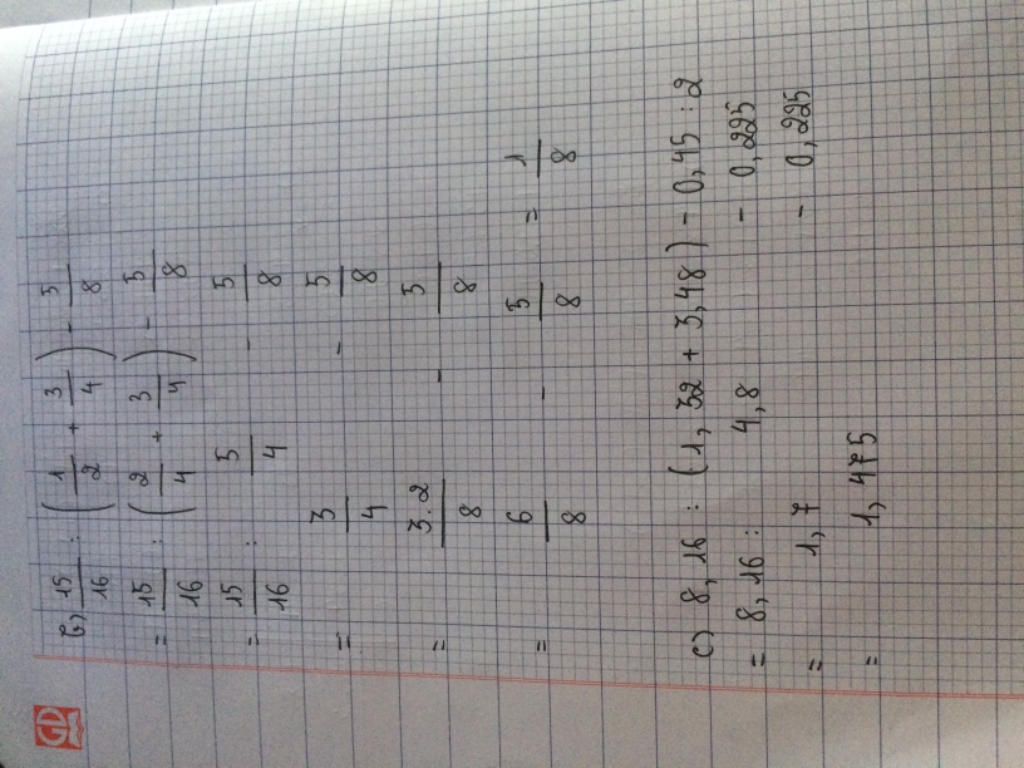 GD
b) 15/16 : (1/2 + 3/4) - 5/8
= 15/16 : (2/4 + 3/4) - 5/8
= 15/16 : 5/4 - 5/8
= 3/4 - 5/8
= 3.2/8 - 5/8
= 6/8 - 5/8 = 1/8
c) 8,16 : (1,32 + 3,48) - 0,45 : 2
= 8,16 : 4,8 - 0,225
= 1,7 - 0,225
= 1,475